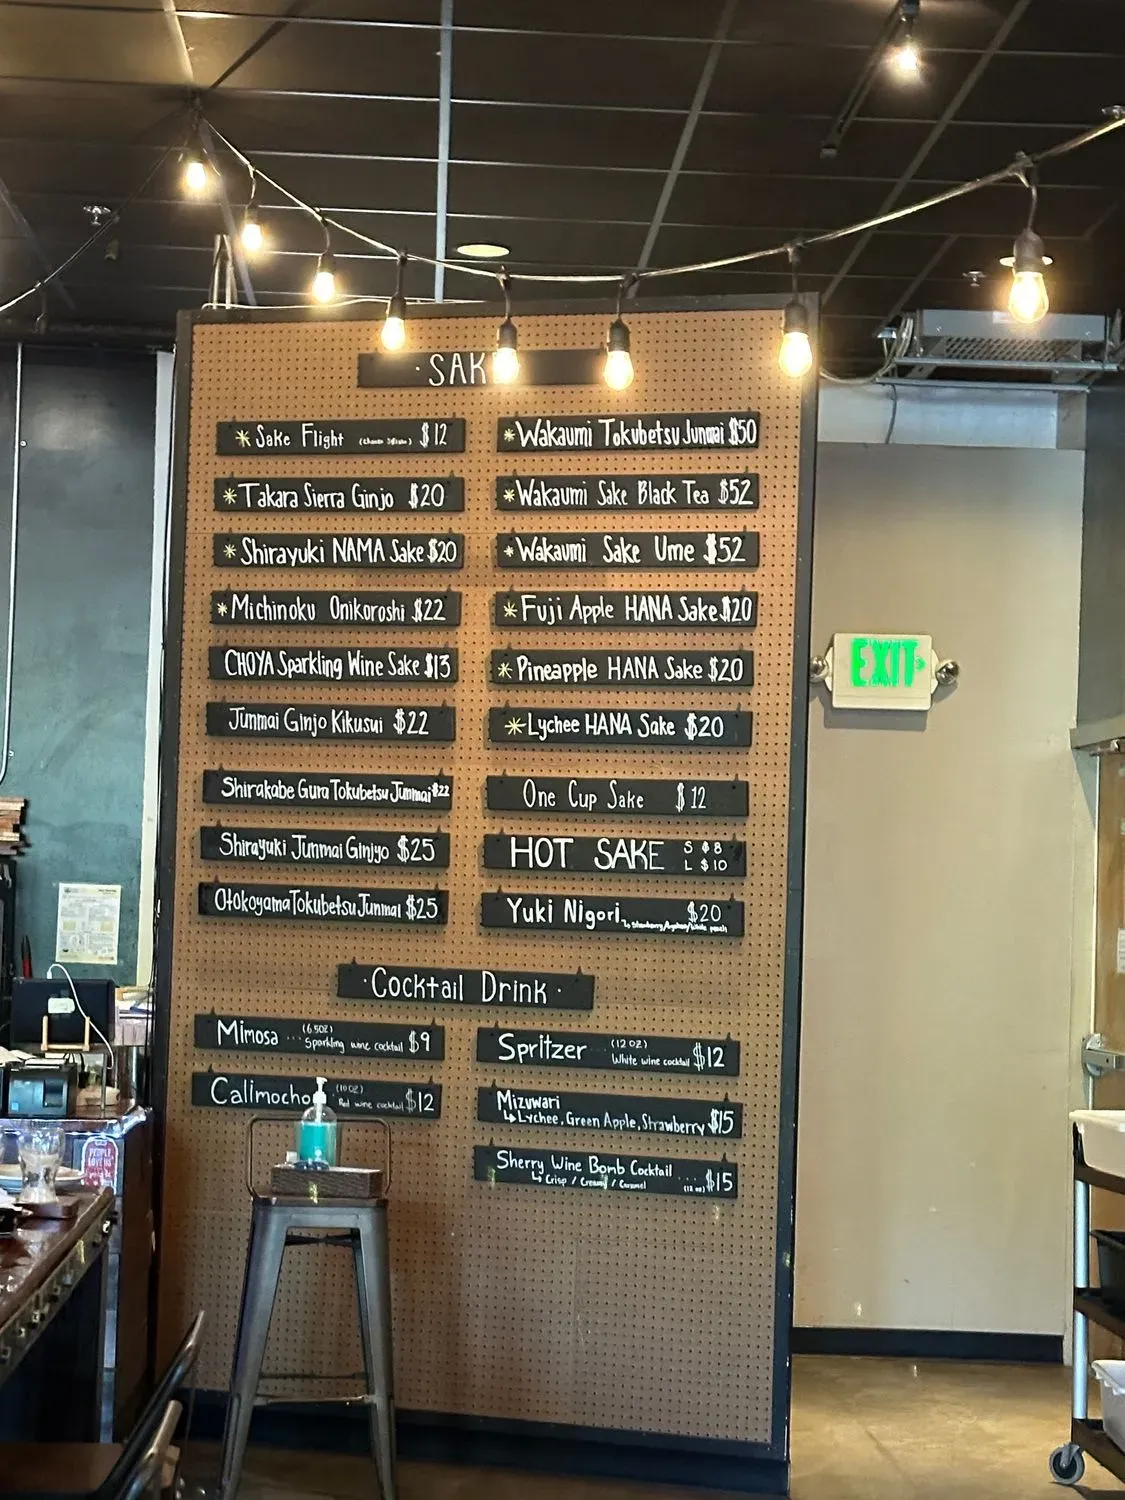 · SAK
* Sake Flight $12
* Takara Sierra Ginjo $20
* Shirayuki NAMA Sake $20
* Michinoku Onikoroshi $22
CHOYA Sparkling Wine Sake $13
Junmai Ginjo Kikusui $22
Shirakabe Gura Tokubetsu Junmai $22
Shirayuki Junmai Ginjyo $25
Otokoyama Tokubetsu Junmai $25
* Wakaumi Tokubetsu Junmai $50
* Wakaumi Sake Black Tea $52
* Wakaumi Sake Ume $52
* Fuji Apple HANA Sake $20
* Pineapple HANA Sake $20
* Lychee HANA Sake $20
One Cup Sake $12
HOT SAKE S $8
L $10
Yuki Nigori $20
· Cocktail Drink ·
Mimosa ... (6.5OZ) $9
Sparkling wine cocktail
Calimocho (10 OZ) $12
Red wine cocktail
Spritzer ... (12 OZ) $12
White wine cocktail
Mizuwari
↳ Lychee, Green Apple, Strawberry $15
Sherry Wine Bomb Cocktail .... $15
↳ Crisp / Creamy / Caramel (12 oz)
EXIT
PEOPLE
LOVE US